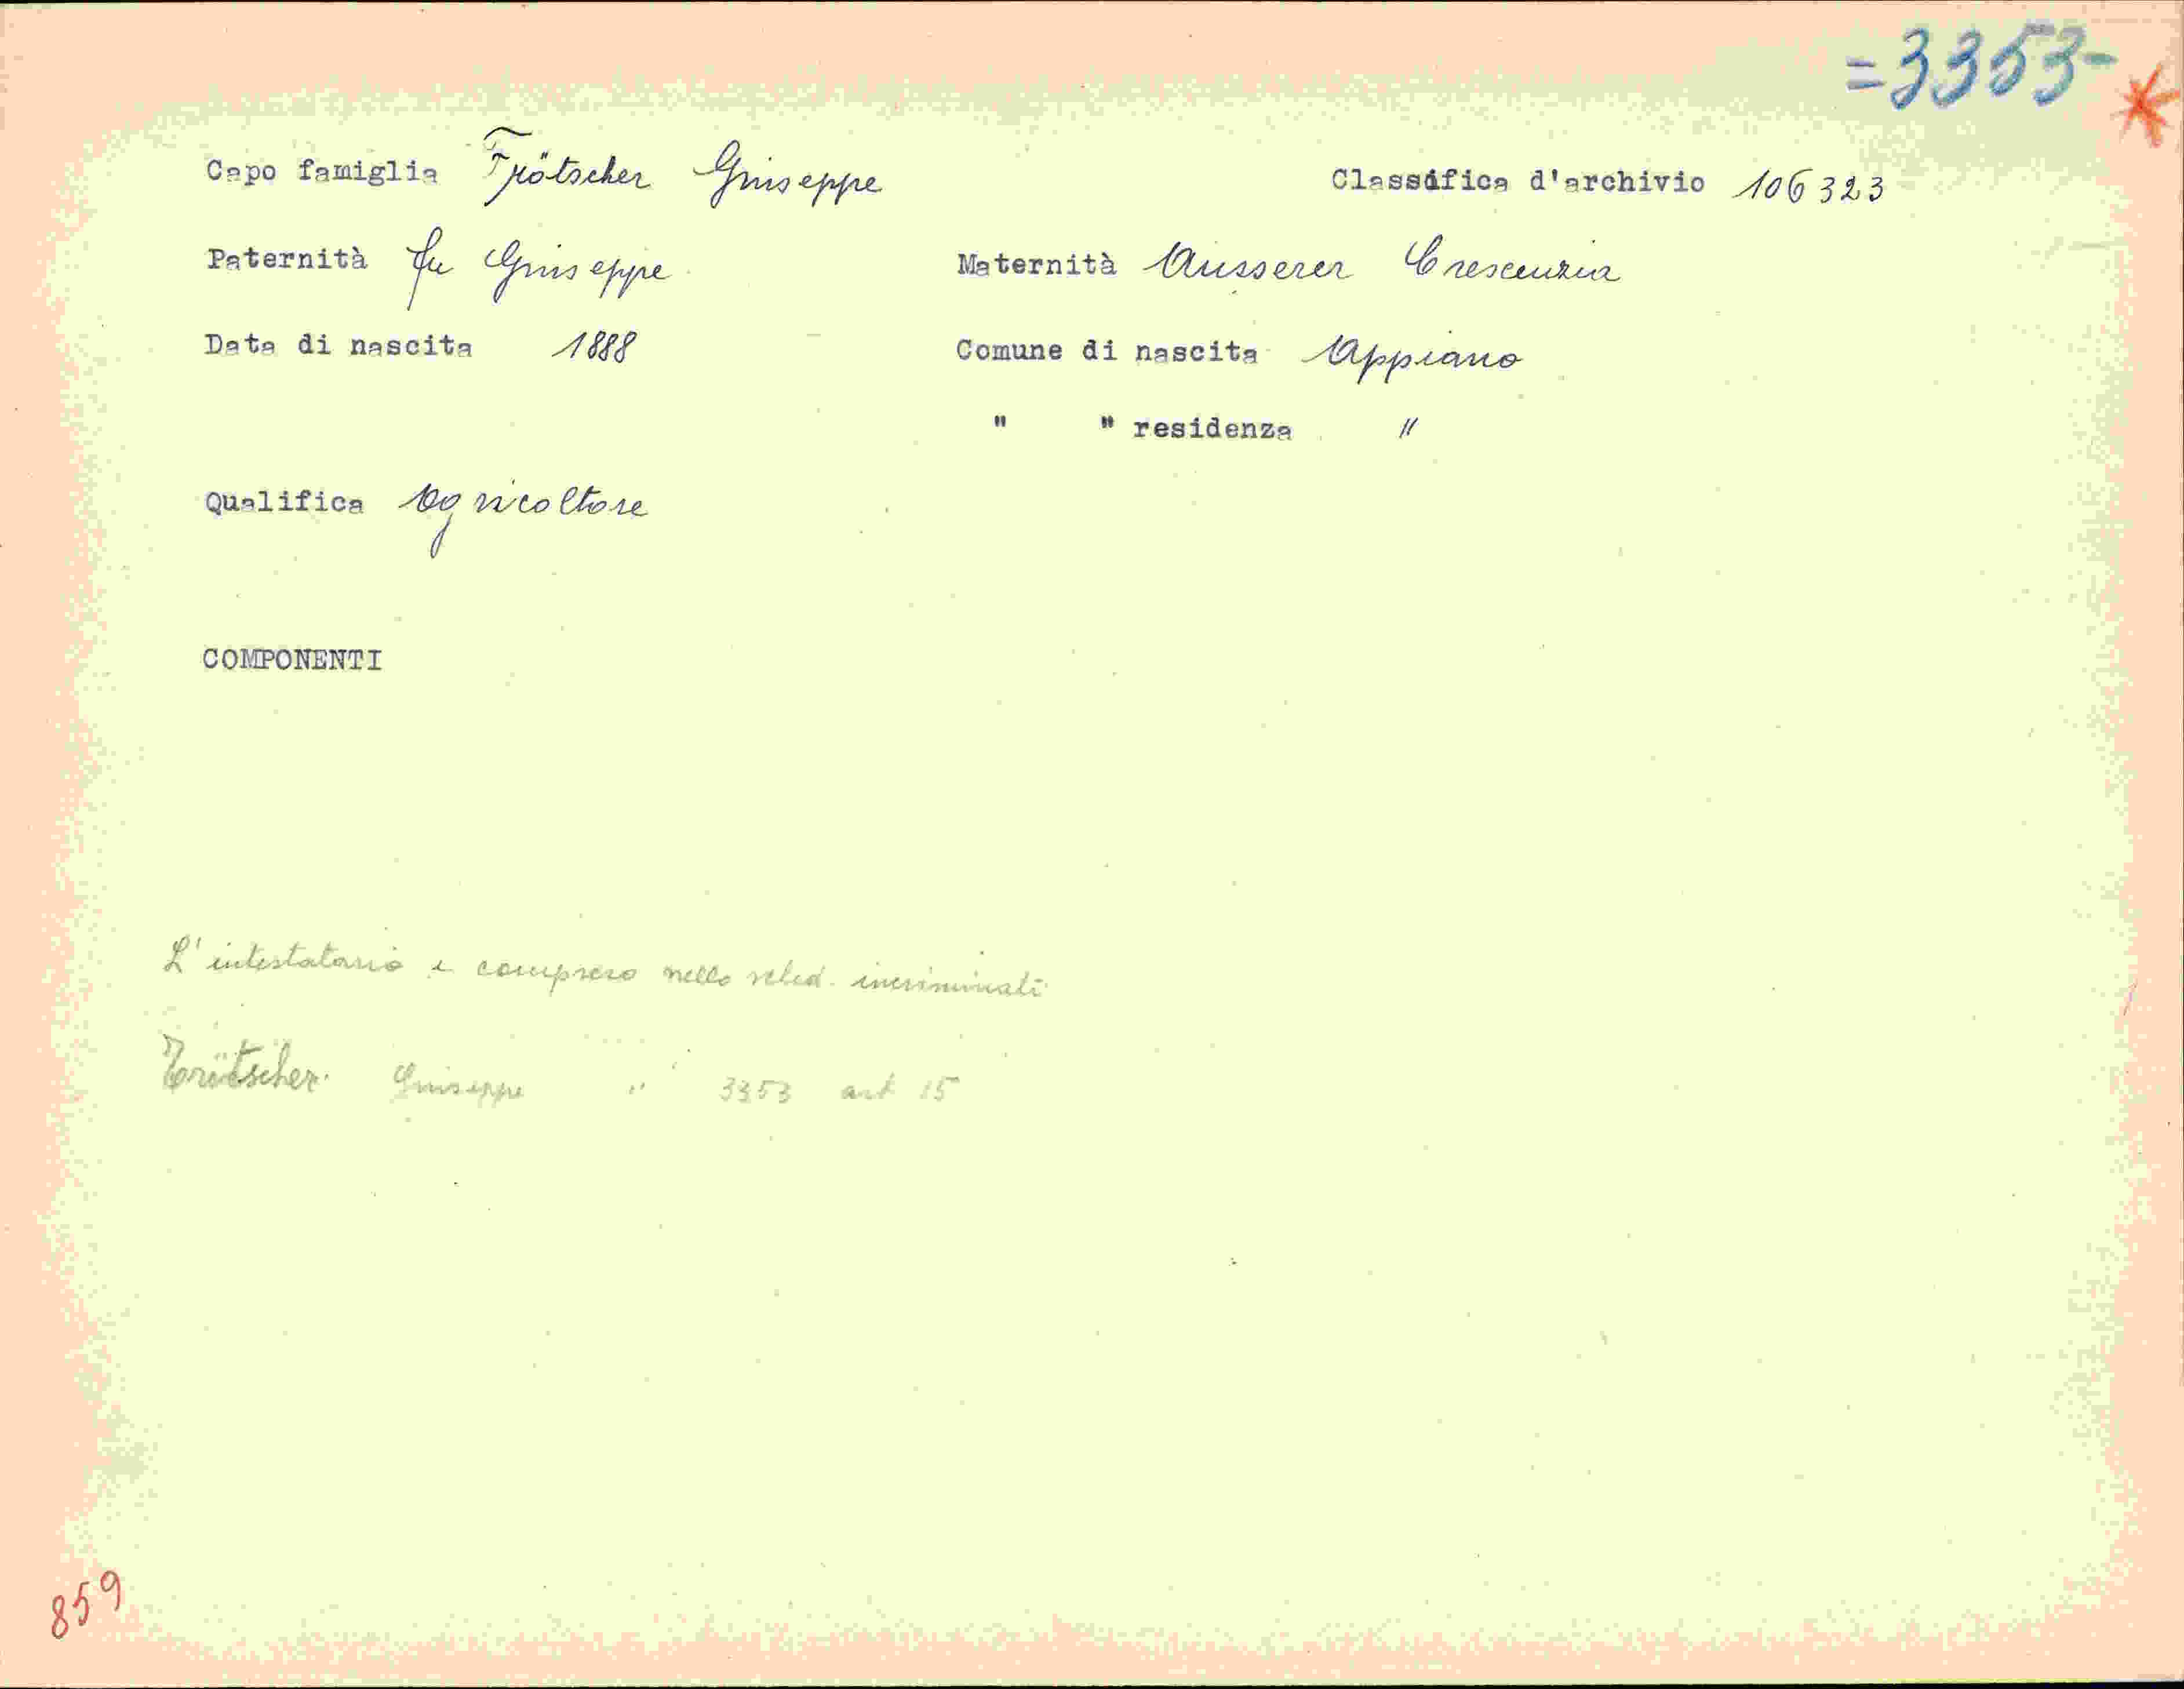 =3353-
Capo famiglia Frötscher Giuseppe Classifica d'archivio 106323
Paternità fu Giuseppe Maternità Ausserer Crescenzia
Data di nascita 1888 Comune di nascita Appiano
" " residenza "
Qualifica Agricoltore
COMPONENTI
L'intestatario è compreso nello sched. incriminati
Frötscher Giuseppe " 3353 art 15
859